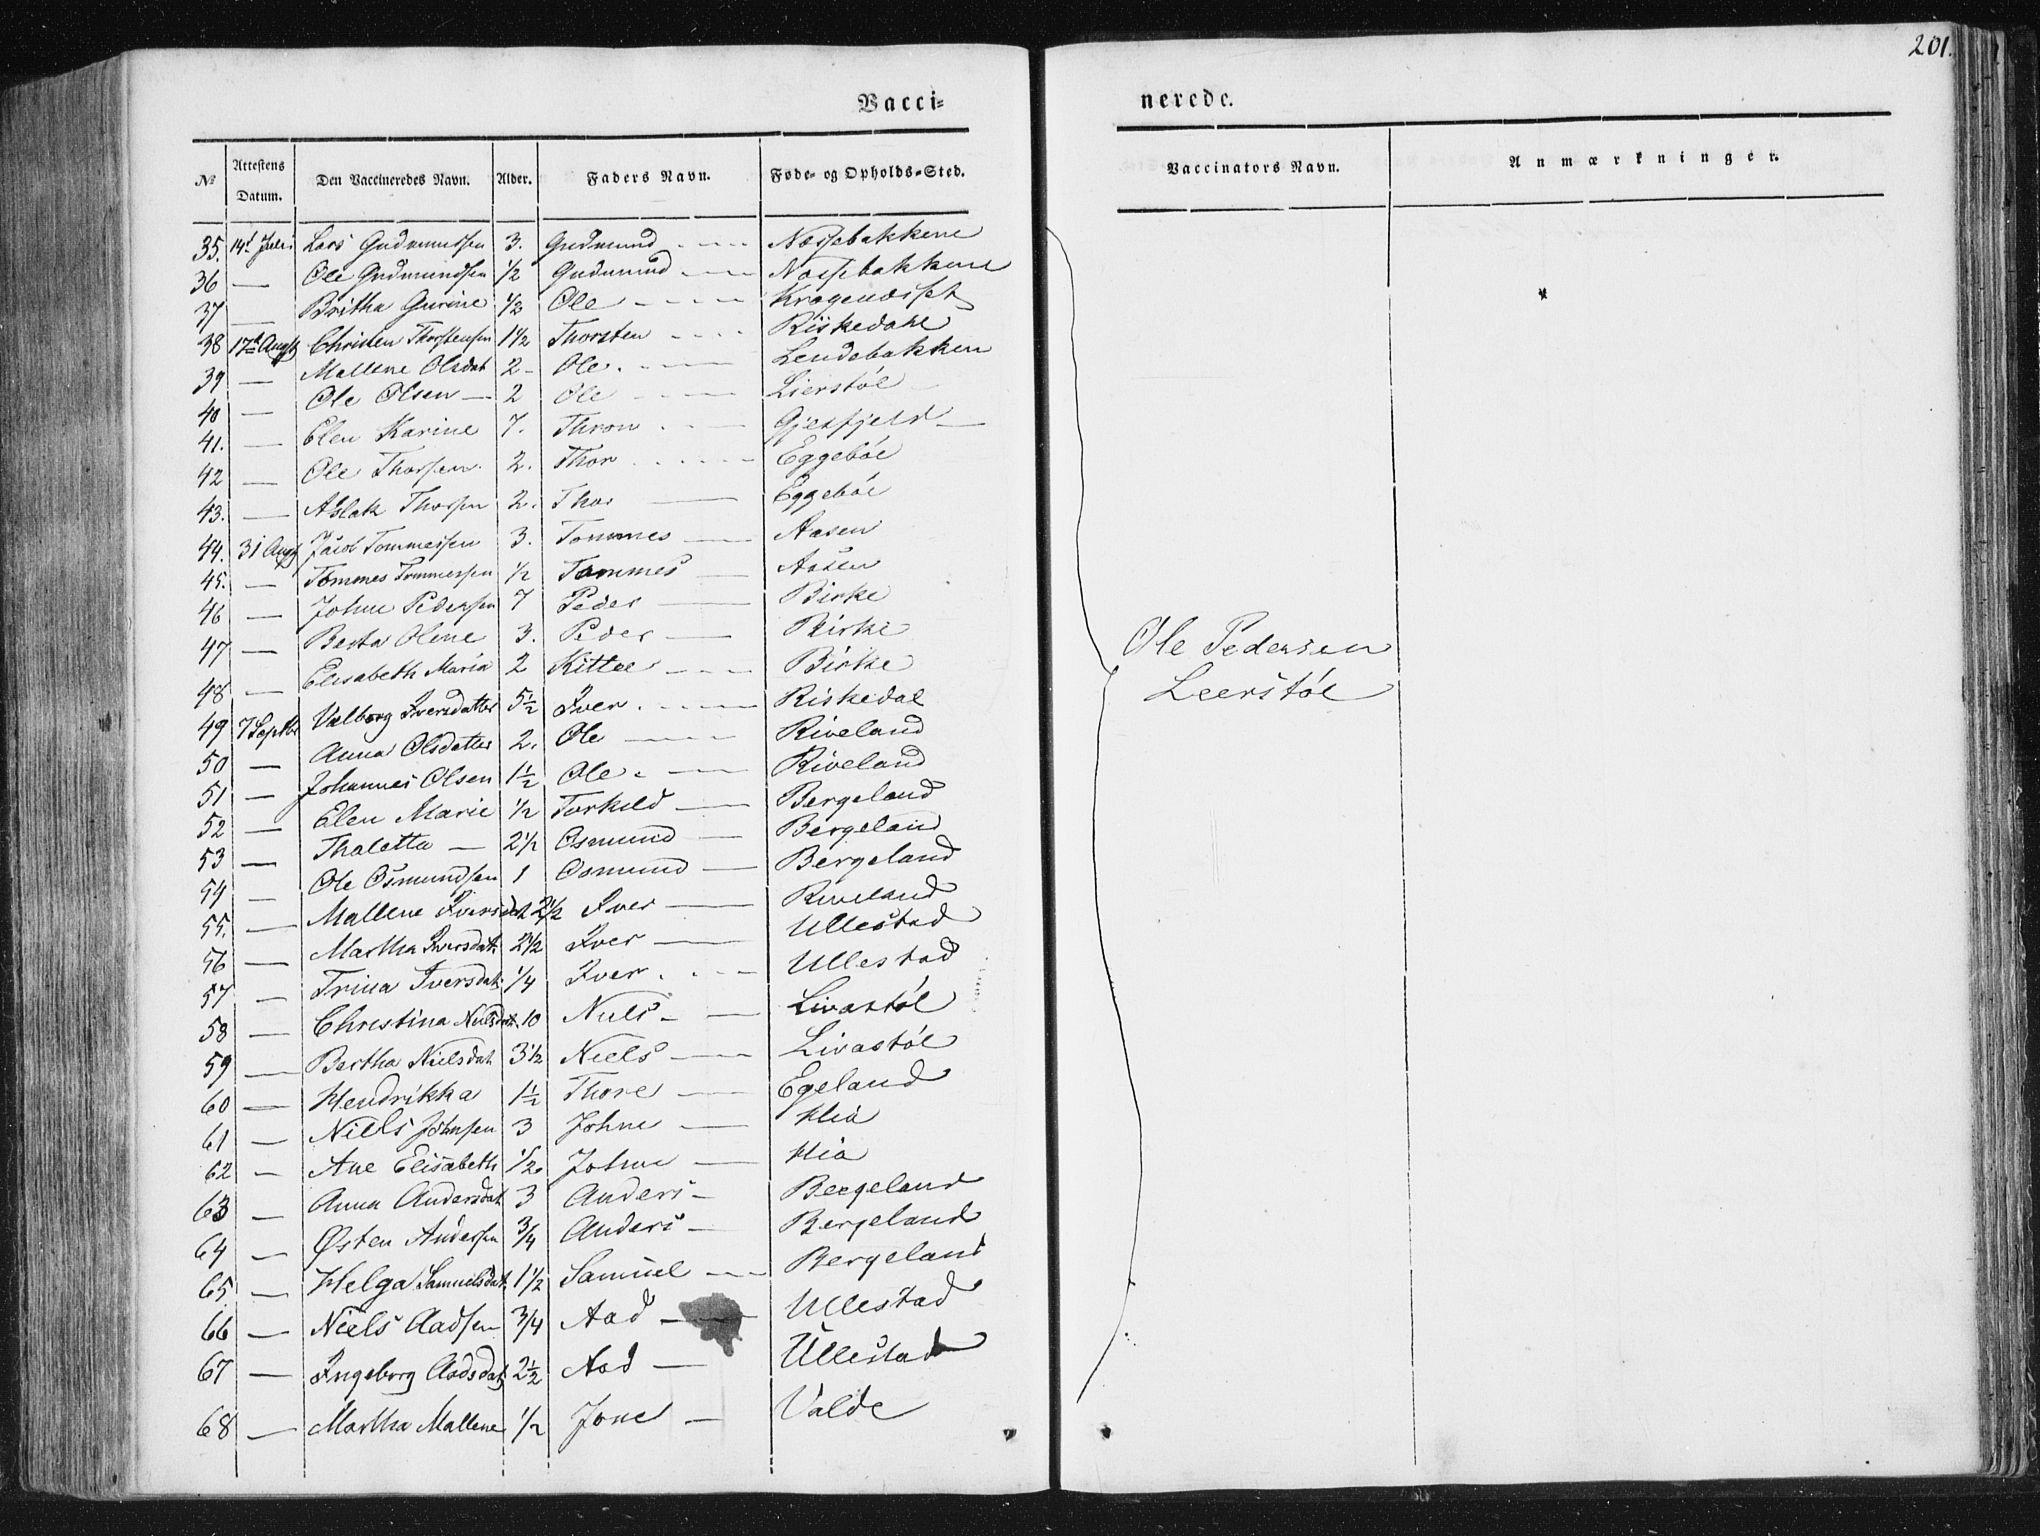 201.
Vacci= nerede.
№ Attestens Datum. Den Vaccineredes Navn. Alder. Faders Navn. Føde- og Opholds-Sted. Vaccinators Navn. Anmærkninger.
35. 14t Juli Lars Gudmundsen 3. Gudmund Næssebakkene
36 — Ole Gudmundsen 1/2 Gudmund Næssebakkene
37 — Britha Gurine 1/2 Ole
38 17de Augst Christen Thorstensen 1 1/2 Thorsten Riskedahl
39 — Mallene Olsdat 2 - Ole Lendebakken
40 — Ole Olsen — 2 Ole Lierstøl
41. — Elen Karine 7. Thron Gjesfjeld —
42 — Ole Thorsen 2. Thor Eggebøe
43. — Aslak Thorsen 2. Thor — Eggebøe
44. 31 Augst Jacob Tommessen 3. Tommes — Aasen
45. — Tommes Tommessen 1/2 Tommes — Aasen
46 — Johne Pedersen 7 Peder — Birke
47 — Berta Olene 3. Peder — Birke
48 — Elisabeth Maria 2 Kittel Birke
49 7 Septbr Valborg Iversdatter 5 1/2 Iver Riskedal
50 — Anna Olsdatter 2. Ole — Riveland
51 — Johannes Olsen 1 1/2 Ole — Riveland
52 — Elen Marie 1/2 Torkild — Bergeland
53 — Thaletta — 2 1/2 Osmund — Bergeland
54 — Ole Osmundsen 1 Osmund — Bergeland
55. — Mallene Iversdat 2 1/2 Iver — Riveland
56 — Martha Iversdat. 2 1/2 Iver — Ullestad
57 — Trina Iversdat. 1/4 Iver Ullestad
58 — Christina Nielsdat. 10 Niels — Livastøl
59 — Bertha Nielsdat 3 1/2 Niels — Livastøl
60 — Hendrikka 1 1/2 Thore — Egeland
61 — Niels Johnsen 3 Johne — Hia
62 — Ane Elisabeth 1/2 Johne — Hia
63 — Anna Andersdat 3 Anders — Bergeland
64 — Østen Andersen 3/4 Anders — Bergeland
65. — Helga Samuelsdat 1 1/2 Samuel — Bergeland
66 — Niels Aadsen 3/4 Aad — Ullestad
67 — Ingeborg Aadsdat 2 1/2 Aad — Ullestad
68 — Martha Mallene 1/2 Jone — Valde
Ole Pedersen
Leerstøl